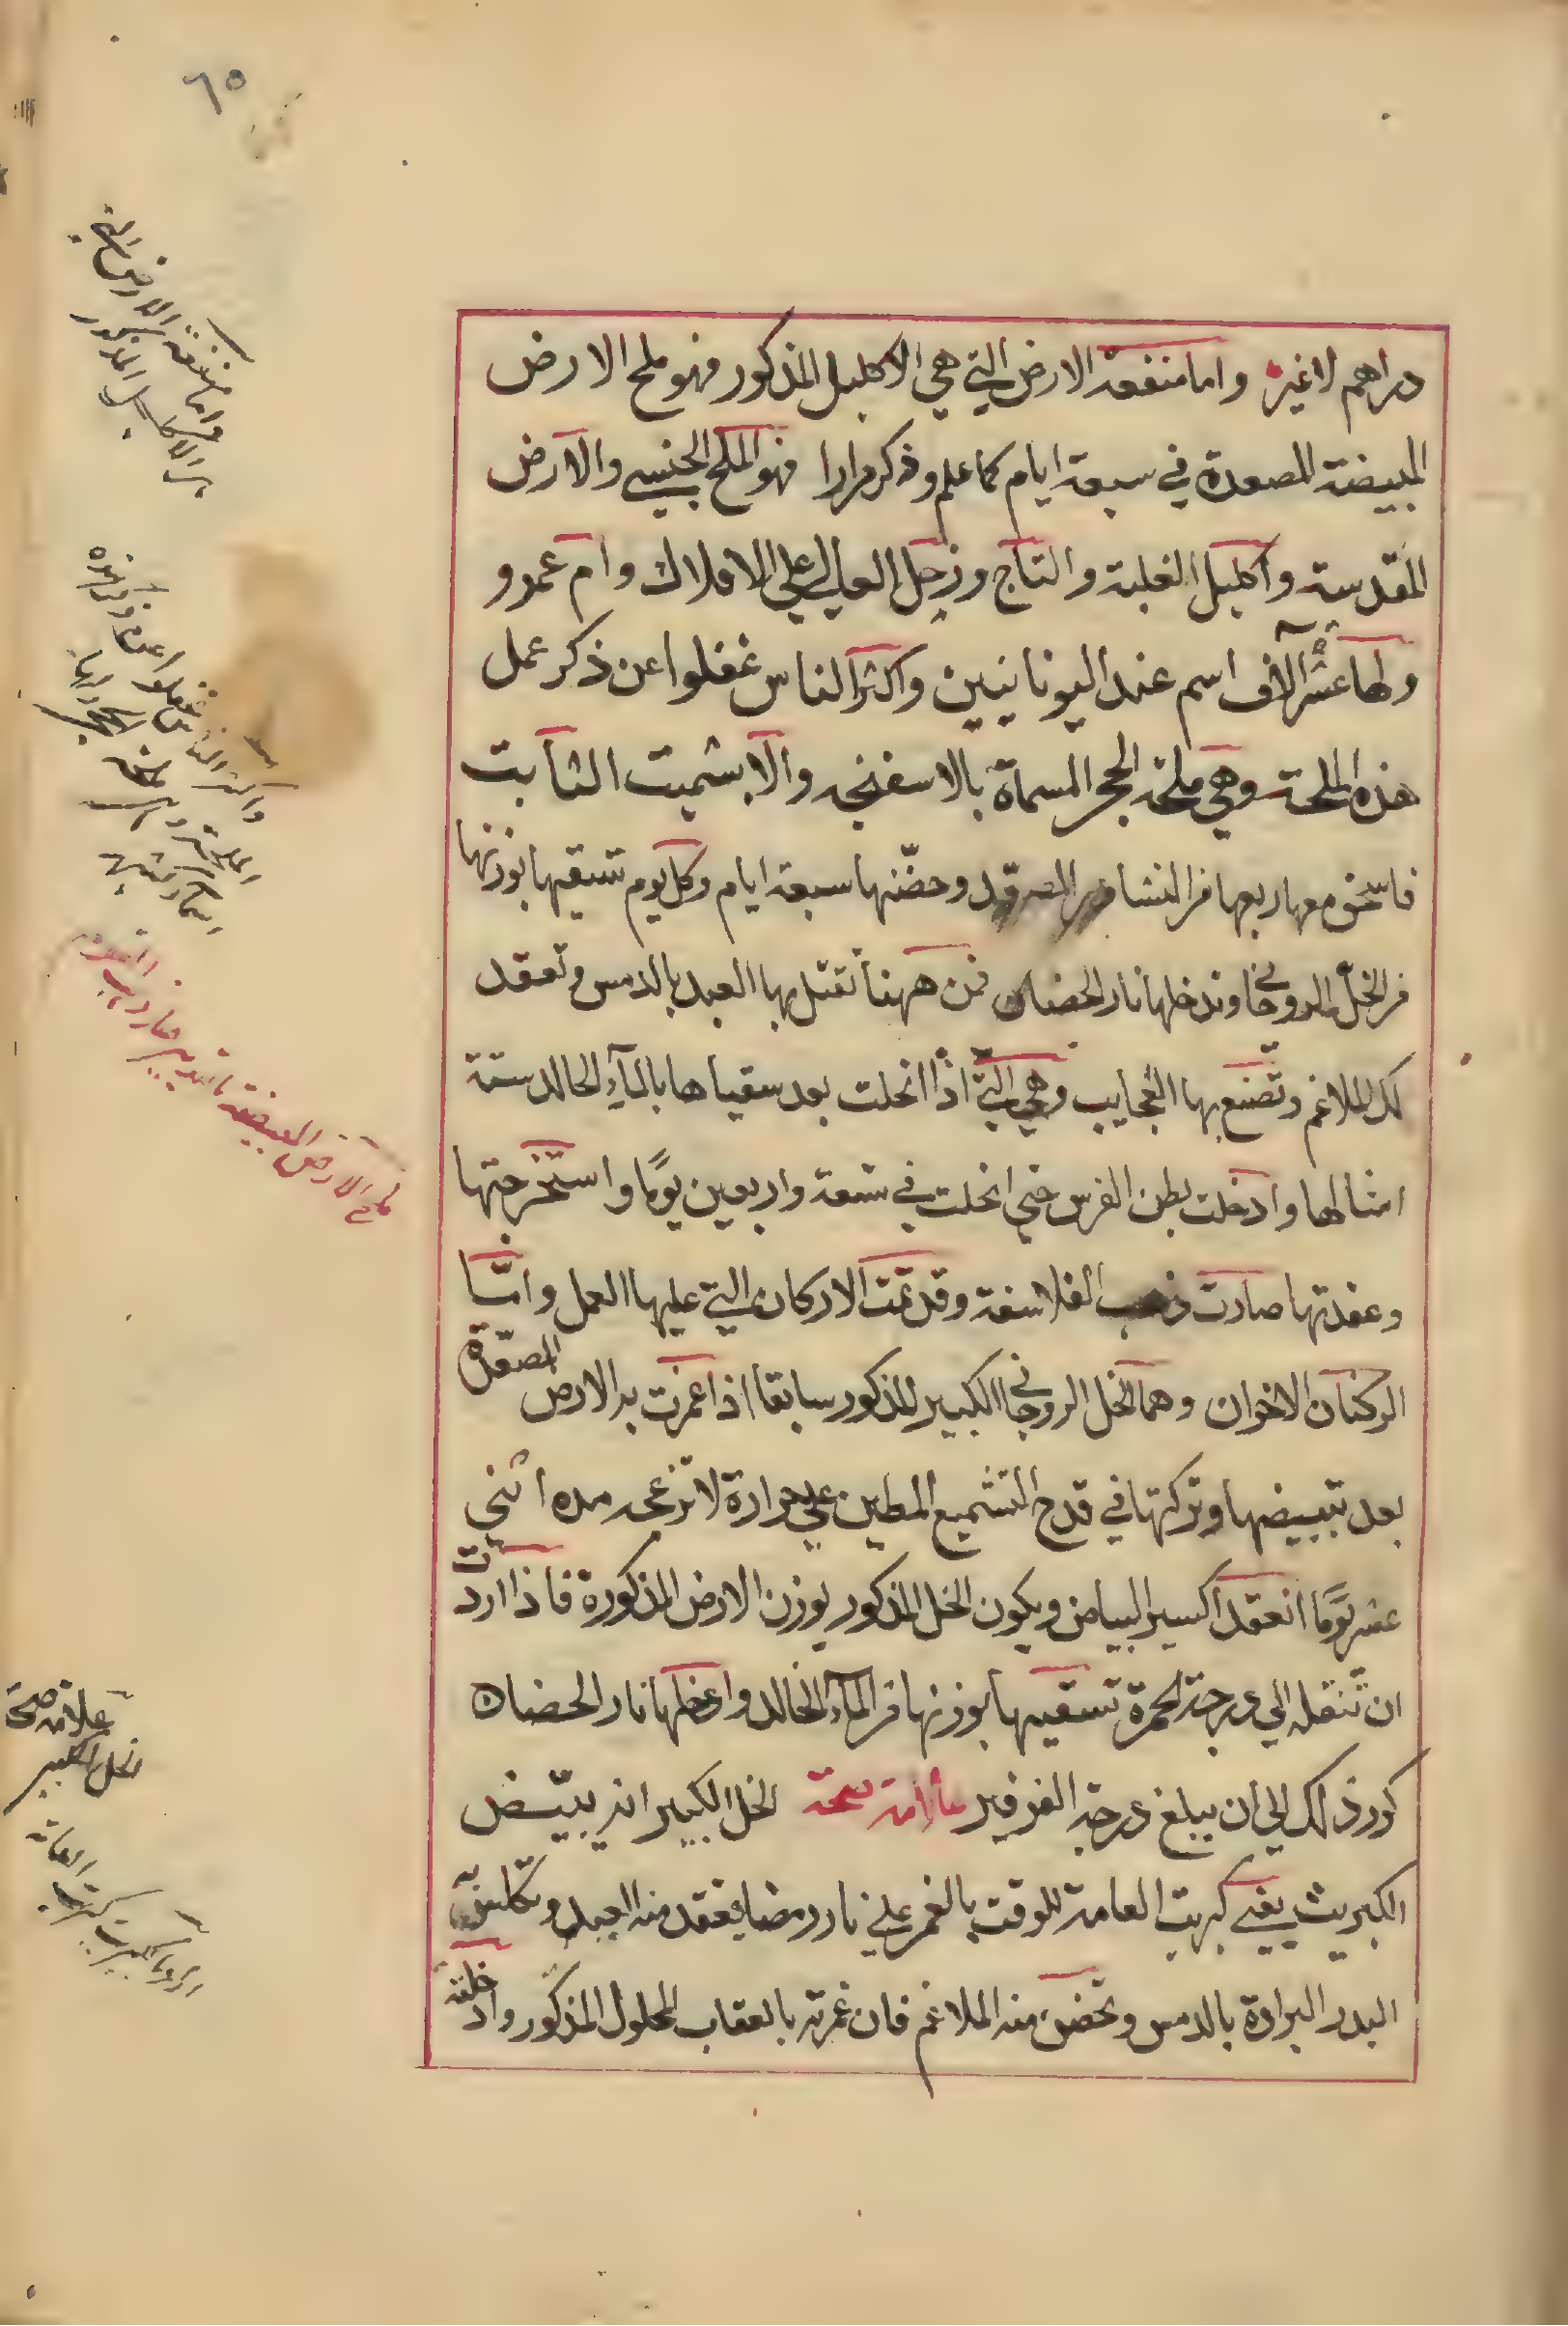 ٦٥
دراهم لا غير واما منفعة الارض التي هي الاكليل المذكور فهو ملح الارض
المبيضة المصعدة في سبعة ايام كما علم وذكر مرارا فهو الملح الجنسي والارض
المقدسة واكليل الغلبة والتاج وزحل العالي علي الافلاك وام عمرو
ولها عشر آلاف اسم عند اليونانيين واكثر الناس غفلوا عن ذكر عمل
هذه الملحة وهي ملحة الحجر المسماة بالاسفنجه والابشميت الثابت
فاسحق معها ربعها من النشادر المصعد وحضنها سبعة ايام وكل يوم تسقيها بوزنها
من الخل الروحاني وتدخلها نار الحضان فمن ههنا تقتل بها العبد بالدمس وتعقد
لك الملاغم وتصنع بها العجايب وهي التي اذا انحلت بعد سقياها بالمآء الخالد ستة
امثالها وادخلت بطن الفرس حتي انحلت في تسعة واربعين يومًا واستخرجتها
وعقدتها صارت ذهب الفلاسفة وقد تمت الاركان التي عليها العمل وامّا
الركنان الاخوان وهما الخل الروحاني الكبير المذكور سابقا اذا غمرت به الارض المصعّدة
بعد تبييضها وتركتها في قدح التشميع المطين علي حرارة لا تزعجه مده اثني
عشر يومًا انعقد اكسير البياض ويكون الخل المذكور بوزن الارض المذكورة فاذا اردت
ان تنقله الي درجة الحمرة تسقيها بوزنها من المآء الخالد وادخلها نار الحضان
كرر ذلك الي ان يبلغ درجة الفرفير علامة صحة الخل الكبير انه يبيّض
الكبريت يعني كبريت العامة للوقت بالغمر علي نار رمضا يعقد منه العبد وتكلس
البدر البرادة بالدمس وتحضن منه الملاغم فان غمرته بالعقاب المحلول المذكور وادخلته
واما منفعة الارض التي
هي الاكليل المذكور
واكثر الناس غفلوا عن ذكر هذه
ملح الارض المبيضة
علامة صحة
الخل الكبير
كبريت العامة